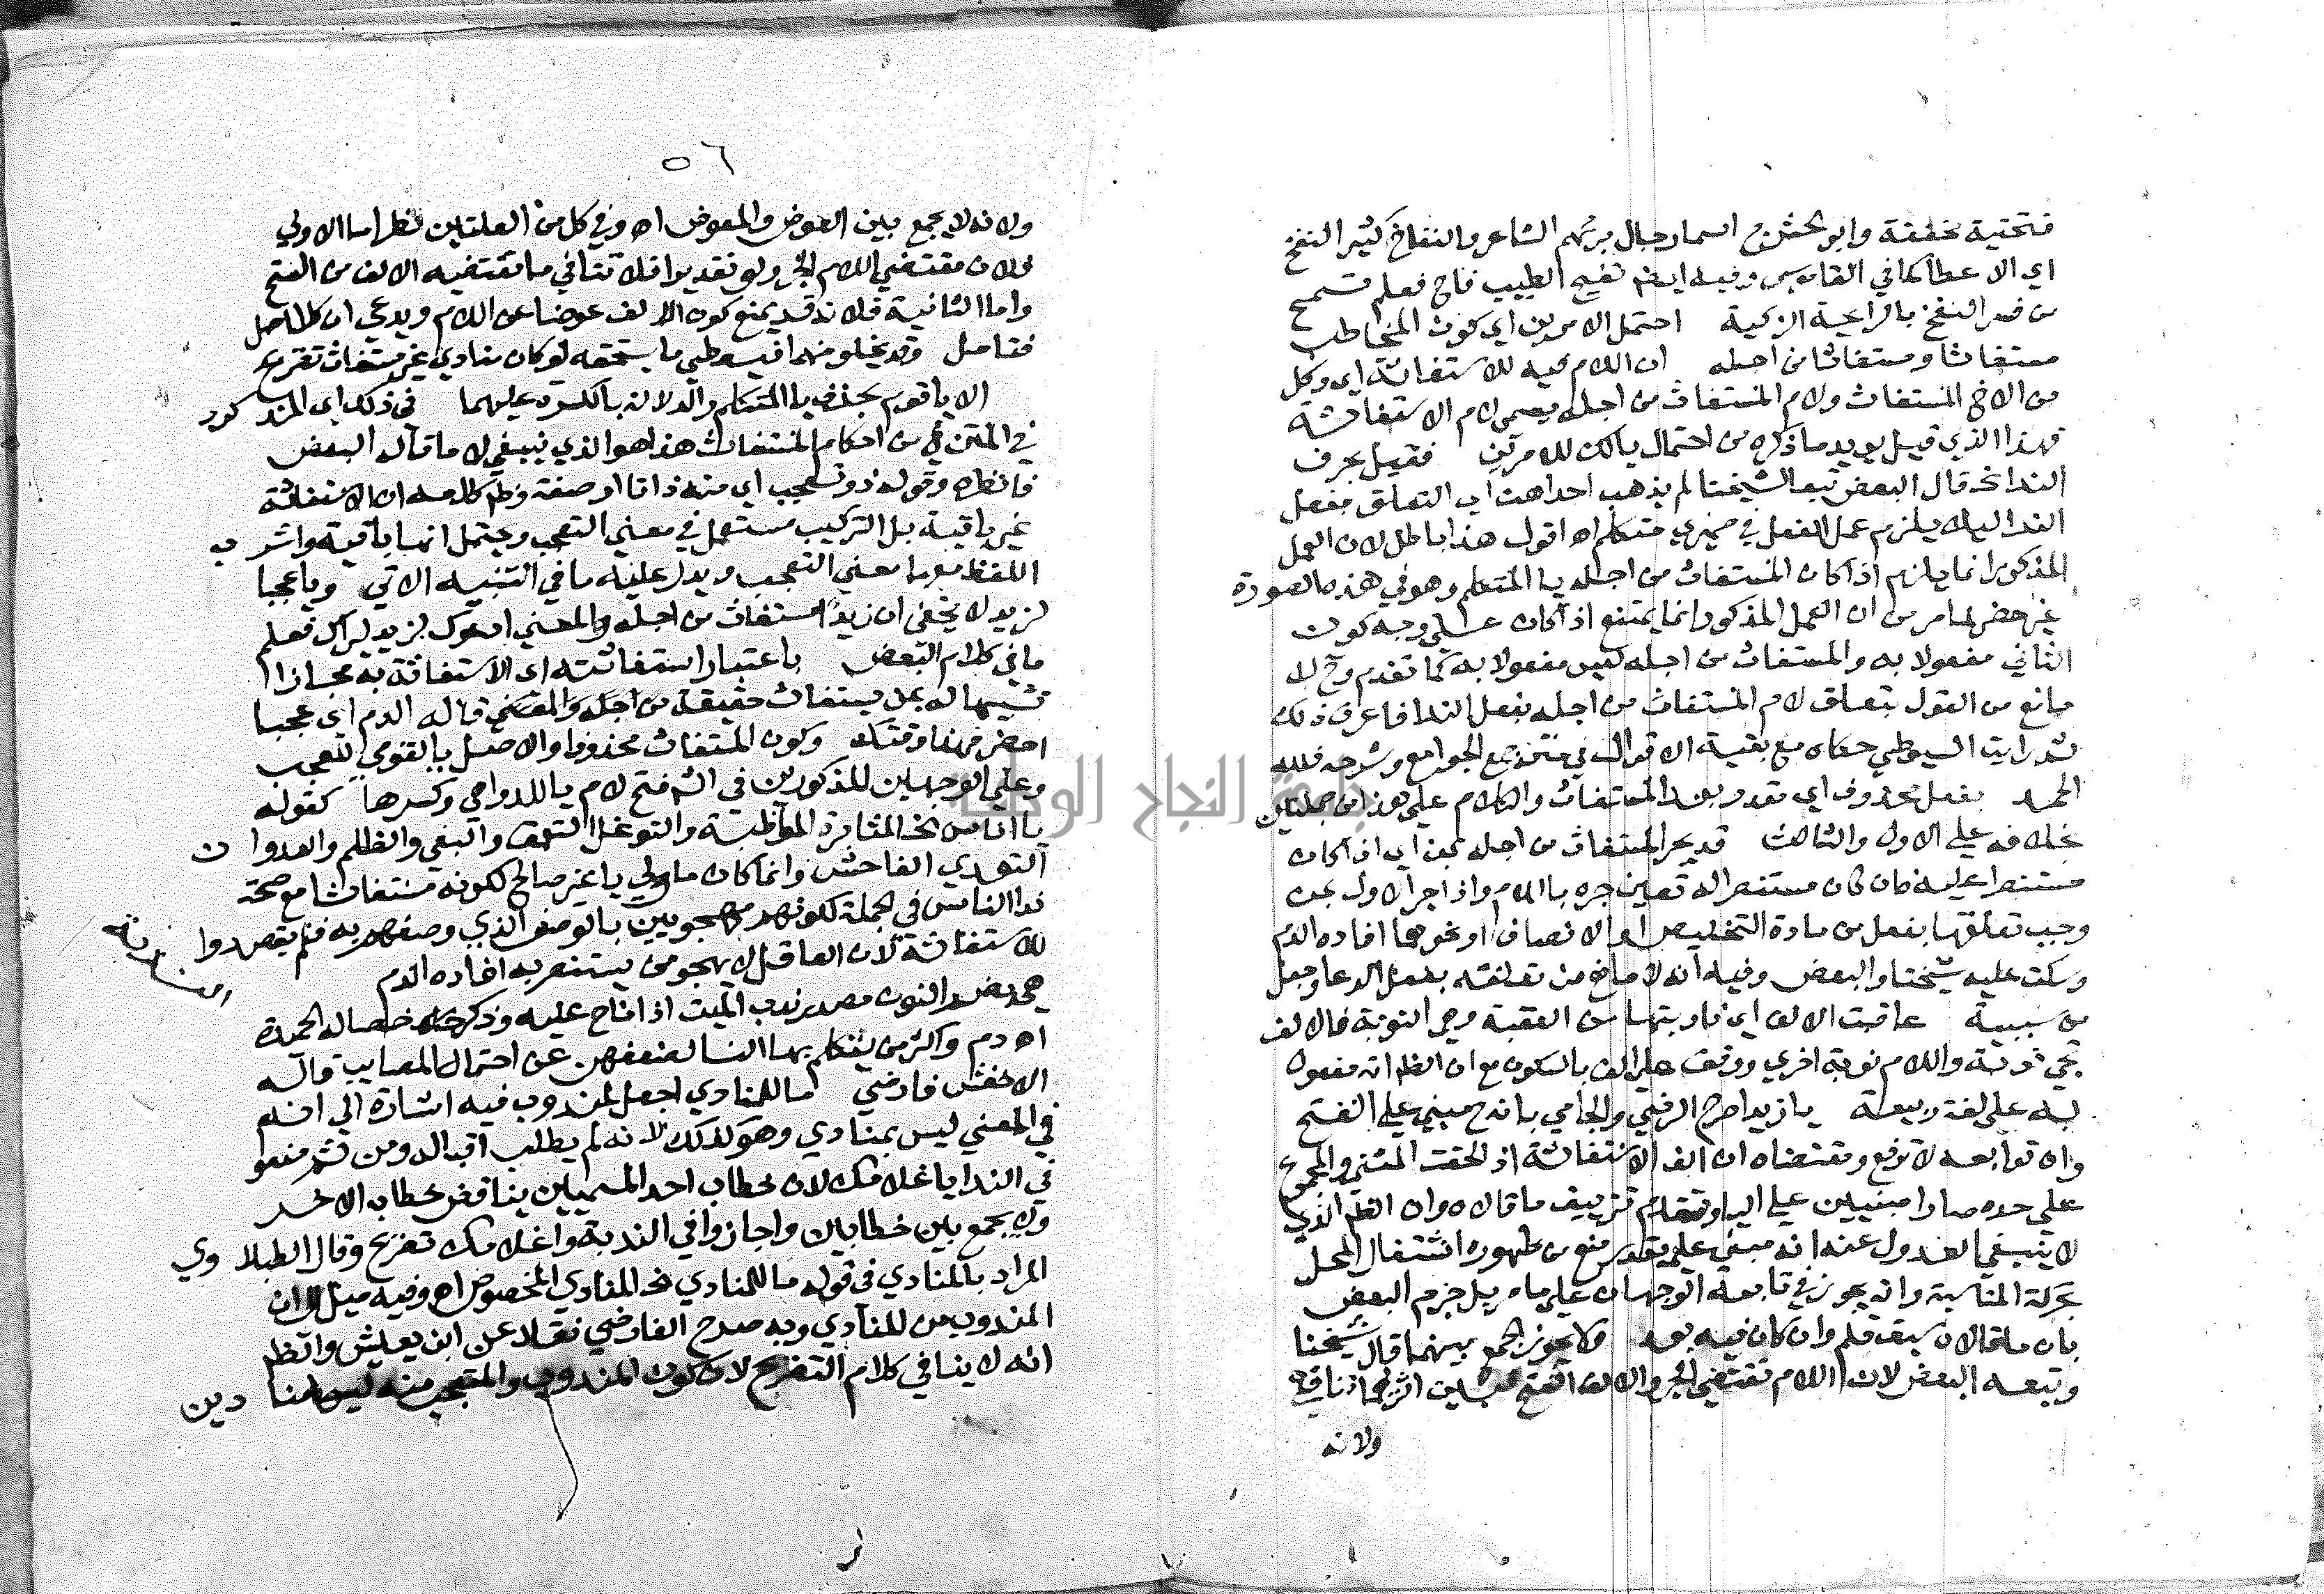 فتحتية مخففة وابو الحشرج اسما رجال يرثيهم الشاعر والنفاح كثير النفح
اي الاعطا كما في القاموس وفيه ايضا نفح الطيب فاح فعلم تسمح
من فسر النفح بالرايحة الزكية احتمل الامرين اي كون المخاطب
مستغاثا ومستغاثا من اجله ان اللام فيه للاستغاثة اي وكل
من لام المستغاث ولام المستغاث من اجله يسمى لام الاستغاثة
فهذا الذي قيل يويد ما ذكره من احتمال يا لك للامرين فقيل بحرف
الندا الخ قال البعض تبعا لشيخنا لم يذهب احد هنا الى التعلق بفعل
الندا اليه يلزم عمل الفعل في ضميري متكلم اه اقول هذا باطل لان العمل
المذكور انما يلزم اذا كان المستغاث من اجله يا المتكلم وهو في هذه الصورة
غير مضر لما مر من ان العمل المذكور انما يمتنع اذا كان على وجه كون
الثاني مفعولا به والمستغاث من اجله ليس مفعولا به كما تقدم وح لا
مانع من القول بتعلق لام المستغاث من اجله بفعل الندا فاعرف ذلك
ثم رايت السيوطي حكاه مع بقية الاقوال في متن جمع الجوامع وشرحه فلله
الحمد بفعل محذوف اي مقدر بعد المستغاث والكلام على هذا من جملتين
بخلافه على الاول والثالث قد يجر المستغاث من اجله بمن اي اذا كان
مستنصرا عليه فان كان مستنصرا له تعين جره باللام واذا جر الاول بمن
وجب تعلقها بفعل من مادة التخليص او الانصاف او نحوهما افاده الدم
وسكت عليه شيخنا والبعض وفيه انه لا مانع من تعلقه بفعل الدعا وجعل
من سببية عاقبت الالف اي ناوبتها من العقبة وهي النوبة فالالف
تجي نوبة واللام نوبة اخري ووقف على الف بالسكون مع ان الظ انه مفعول
به على لغة ربيعة يا زيدا صرح الرضي والجامي بانه مبني على الفتح
وان توابعه لا ترفع ومقتضاه ان الف الاستغاثة اذا لحقت المثني والمجموع
على حده صارا مبنيين على اليا وتقدم تزييف ما قالاه وان الظ الذي
لا ينبغي العدول عنه انه مبني على مقدر منع من ظهوره اشتغال المحل
بحركة المناسبة وانه يجوز في تابعه الوجهان على ما مر بل جزم البعض
بان ما قالاه سبق قلم وان كان فيه بعد ولا يجوز الجمع بينهما قال شيخنا
وتبعه البعض لان اللام تقتضي الجر والالف الفتح فبين اثريهما تناف
ولانه
٥٦
ولانه لا يجمع بين العوض والمعوض اه وفي كل من العلتين نظر اما الاولي
فلان مقتضي اللام الجر ولو تقديرا فلا تنافي ما تقتضيه الالف من الفتح
واما الثانية فلانه قد يمنع كون الالف عوضا عن اللام ويدعي ان كلا اصل
فتامل وقد يخلو منهما فيعطي ما يستحقه لو كان منادي غير مستغاث تفريع
الا يا قوم بحذف يا المتكلم والدلالة بالكسرة عليها في ذلك اي المذكور
في المتن في من احكام المستغاث هذا هو الذي ينبغي لا ما قاله البعض
فانظره وقوله ذو تعجب اي منه ذاتا او صفة وظ كلامه ان الاستغاثة
غير باقية بل التركيب مستعمل في معني التعجب ويحتمل انها باقية واشرب
اللفظ معها معني التعجب ويدل عليه ما في التنبيه الاتي ويا عجبا
لزيد لا يخفى ان زيدا مستغاث من اجله والمعني ادعوك لزيد فعلم
ما في كلام البعض باعتبار استغاثته اي الاستغاثة به مجازا
تشبيها له بمن يستغاث حقيقة من اجله والمعني قاله الدم اي عجبا
احضر فهذا وقتك وكون المستغاث محذوفا والاصل يا لقومي للعجب
وعلى الوجهين المذكورين في الش فتح لام يا للدواهي وكسرها كقوله
يا اناس الخ المثابرة المواظبة والتوغل التعمق والبغي والظلم والعدوان
التعدي الفاحش وانما كان ما ولي يا غير صالح لكونه مستغاثا مع صحة
ندا الناس في الجملة لكونهم مهجويين بالوصف الذي وصفهم به فلم يقصدوا
للاستغاثة لان العاقل لا يهجو من يستنصر به افاده الدم
الندبة
هي بضم النون مصدر ندب الميت اذا ناح عليه وذكر خصاله الحميدة
اه دم واكثر من يتكلم بها النسا لضعفهن عن احتمال المصايب قاله
الاخفش فارضي ما للمنادي اجعل لمندوب فيه اشارة الي انه
في المعني ليس بمنادي وهو كذلك لانه لم يطلب اقباله ومن ثم منعوا
في الندا يا غلامك لان خطاب احد المسميين يناقض خطاب الاخر
ولا يجمع بين خطابين واجازوا في الندبة واغلامك تصريح وقال الطبلاوي
المراد بالمنادي في قوله ما للمنادي الخ المنادي المخصوص اه وفيه ميل الي ان
المندوب من المنادي وبه صرح الفارضي نقلا عن ابن يعيش والظ
انه لا ينافي كلام التصريح لان كون المندوب والمتعجب منه ليس منادين